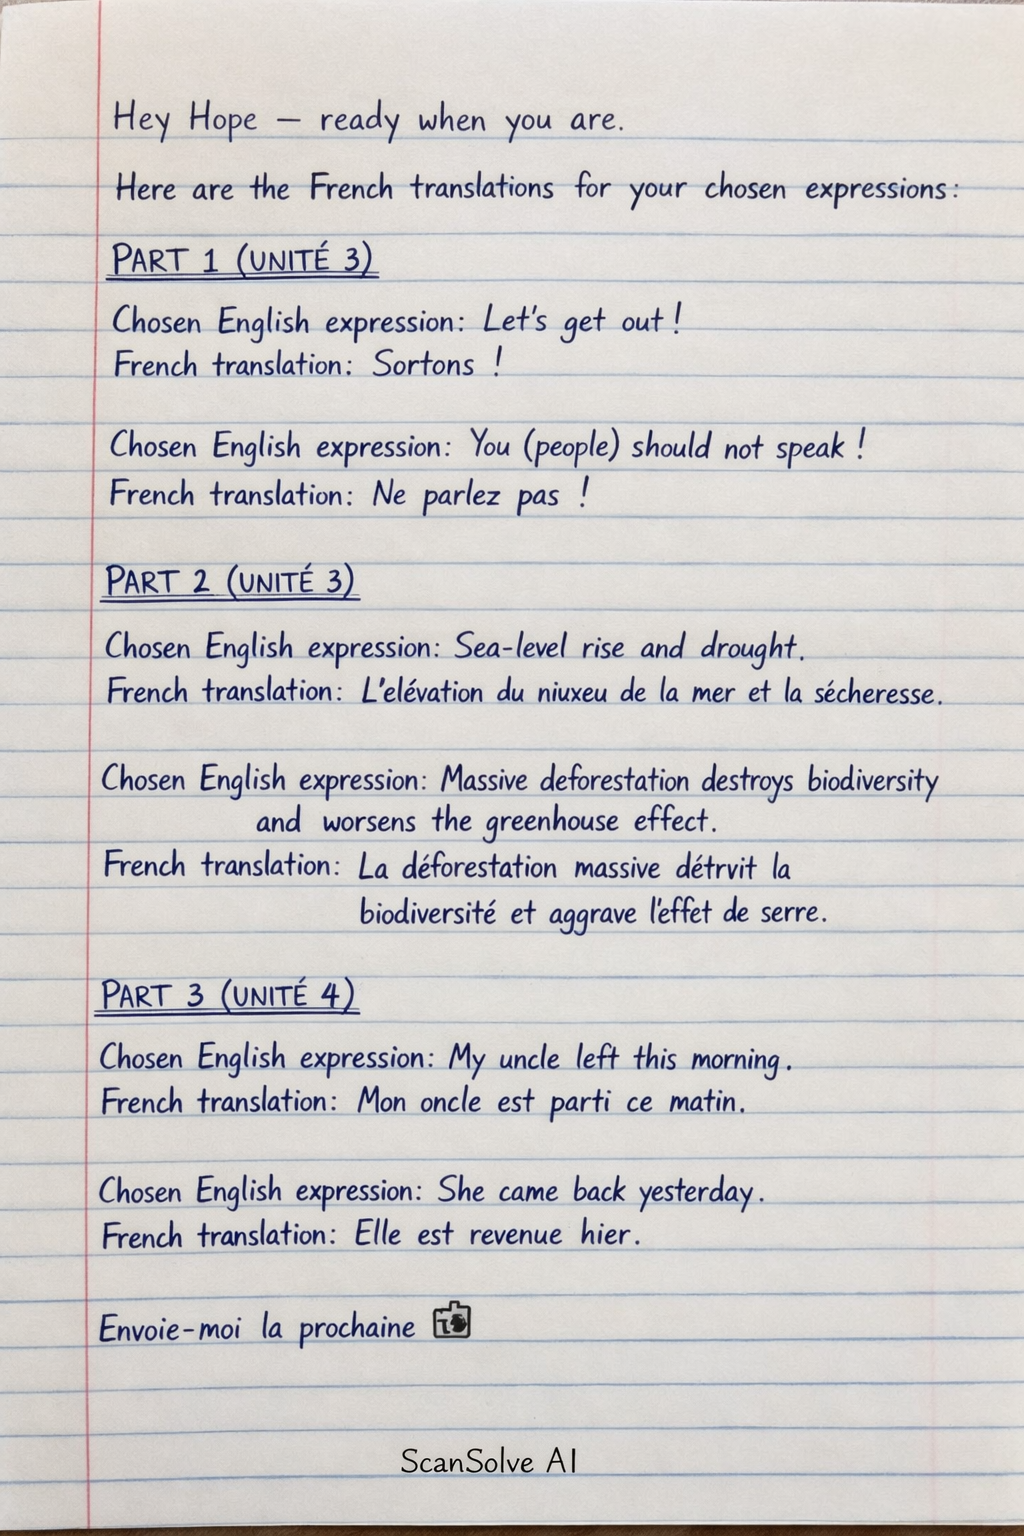 Hey Hope — ready when you are.
Here are the French translations for your chosen expressions:
PART 1 (UNITÉ 3)
Chosen English expression: Let's get out!
French translation: Sortons !
Chosen English expression: You (people) should not speak !
French translation: Ne parlez pas !
PART 2 (UNITÉ 3)
Chosen English expression: Sea-level rise and drought.
French translation: L'elévation du niuxeu de la mer et la sécheresse.
Chosen English expression: Massive deforestation destroys biodiversity
and worsens the greenhouse effect.
French translation: La déforestation massive détrvit la
biodiversité et aggrave l'effet de serre.
PART 3 (UNITÉ 4)
Chosen English expression: My uncle left this morning.
French translation: Mon oncle est parti ce matin.
Chosen English expression: She came back yesterday.
French translation: Elle est revenue hier.
Envoie-moi la prochaine
ScanSolve AI